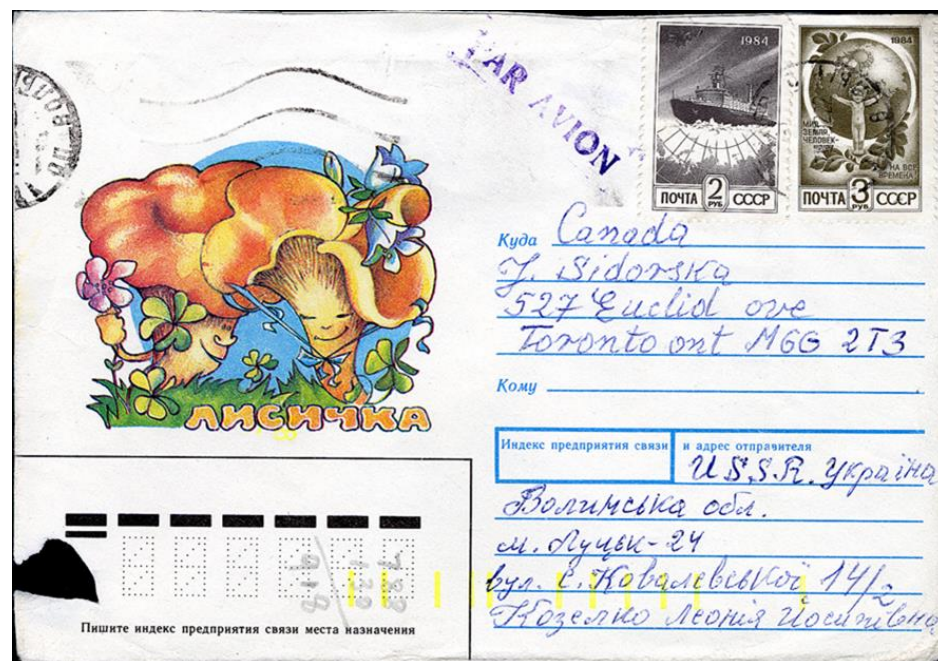 PAR AVION
1984
ПОЧТА 2 РУБ СССР
1984
МИР
ЗЕМЛЯ
ЧЕЛОВЕК-
НА ВСЕ
ВРЕМЕНА
ПОЧТА 3 РУБ СССР
Куда Canada
J. Sidorska
527 Euclid ave
Toronto ont M6G 2T3
Кому
ЛИСИЧКА
Индекс предприятия связи и адрес отправителя
U.S.S.R. Україна
Волинська обл.
м. Луцьк-24
вул. С. Ковалевської 14/2
Козелко Леонія Йосипівна
Пишите индекс предприятия связи места назначения